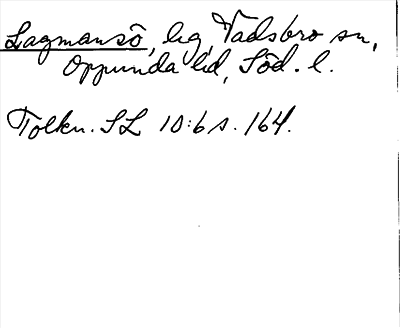 Lagmansö, lg, Vadsbro sn,
Oppunda hd, Söd. l.
Tolkn. SL 10:6 s. 164.